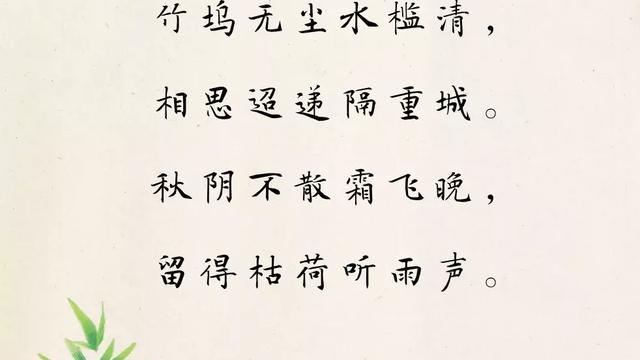 竹坞无尘水槛清，
相思迢递隔重城。
秋阴不散霜飞晚，
留得枯荷听雨声。